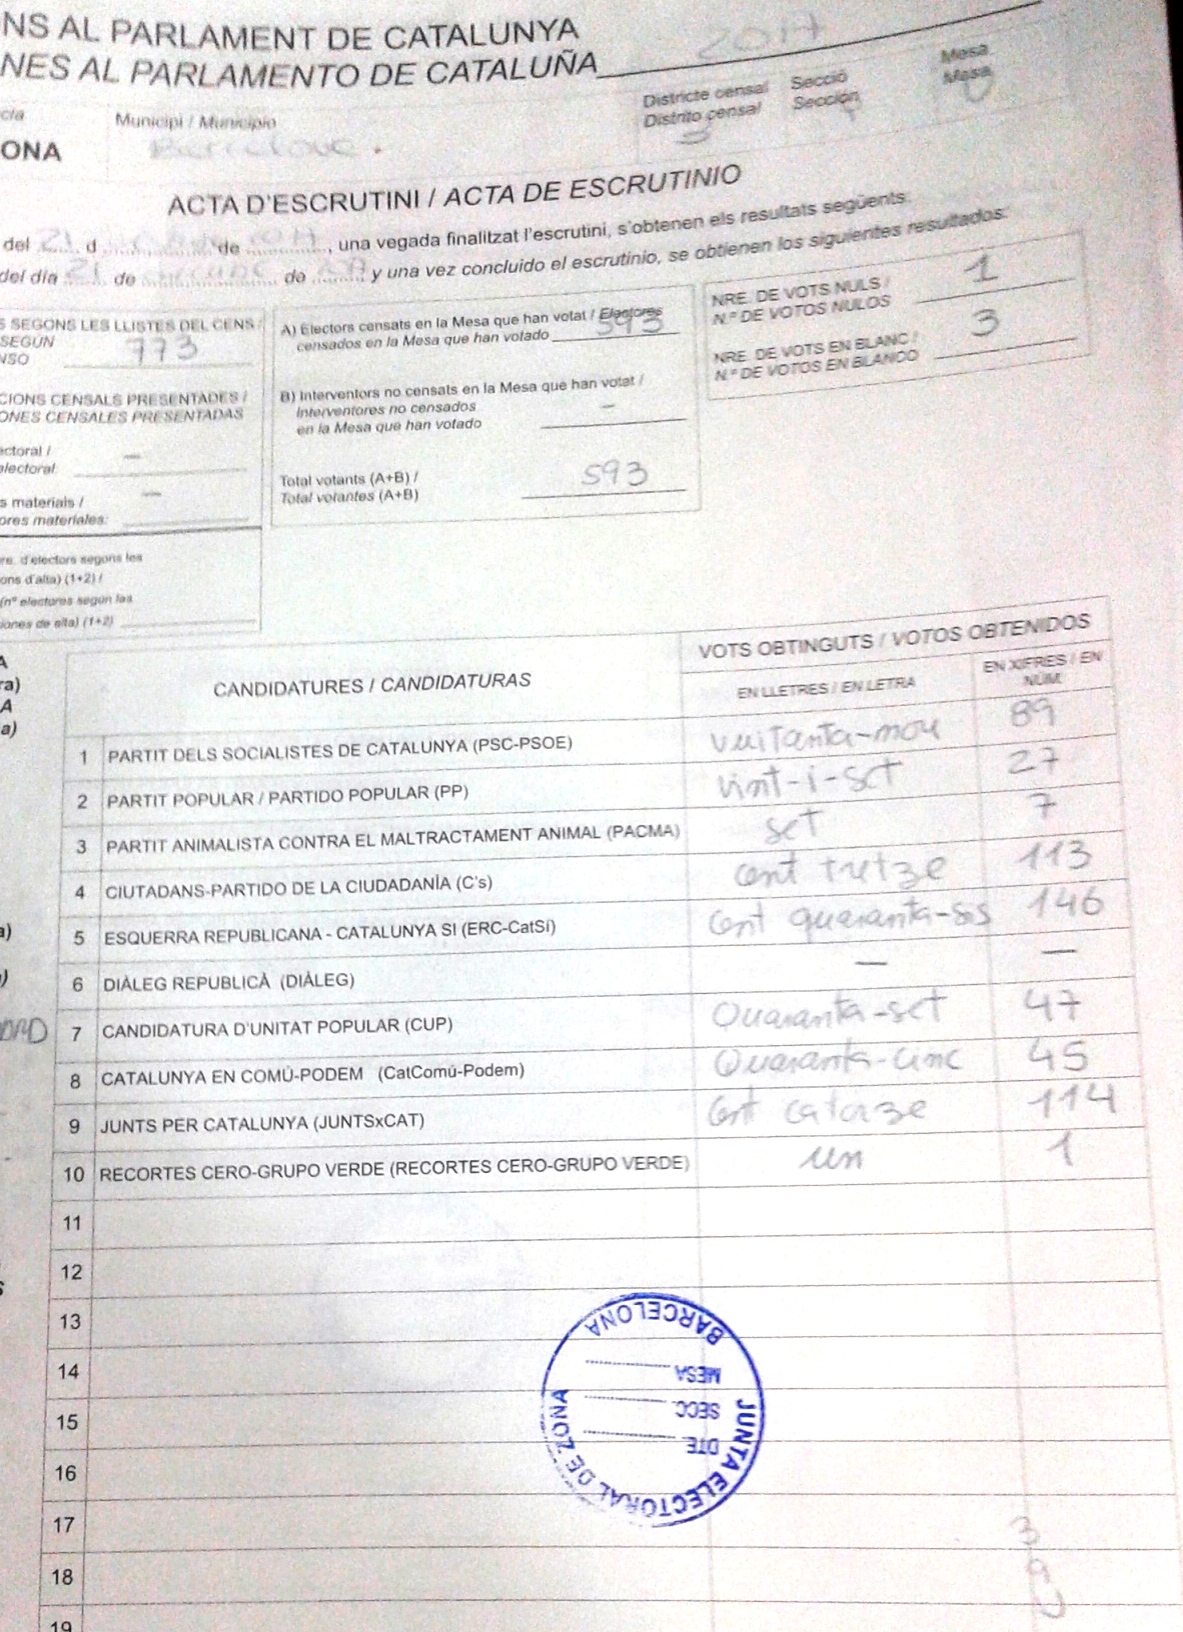 NS AL PARLAMENT DE CATALUNYA
NES AL PARLAMENTO DE CATALUÑA 2017
cia Municipi / Municipio Districte censal Secció Mesa
Distrito censal Sección Mesa
ONA Barcelona
ACTA D'ESCRUTINI / ACTA DE ESCRUTINIO
del 21 d de 2017, una vegada finalitzat l'escrutini, s'obtenen els resultats següents:
del día 21 de de y una vez concluido el escrutinio, se obtienen los siguientes resultados:
S SEGONS LES LLISTES DEL CENS /
SEGÚN
NSO 773
CIONS CENSALS PRESENTADES /
ONES CENSALES PRESENTADAS
ectoral / —
electoral:
s materials / —
ores materiales:
re. d'electors segons les
ons d'alta) (1+2) /
(nº electores según las
iones de alta) (1+2)
A) Electors censats en la Mesa que han votat / Electores
censados en la Mesa que han votado 593
B) Interventors no censats en la Mesa que han votat /
Interventores no censados
en la Mesa que han votado —
Total votants (A+B) /
Total votantes (A+B) 593
NRE. DE VOTS NULS /
N.º DE VOTOS NULOS 1
NRE. DE VOTS EN BLANC /
N.º DE VOTOS EN BLANCO 3
A
ra)
A
a)
CANDIDATURES / CANDIDATURAS
VOTS OBTINGUTS / VOTOS OBTENIDOS
EN LLETRES / EN LETRA EN XIFRES / EN NÚM.
1 PARTIT DELS SOCIALISTES DE CATALUNYA (PSC-PSOE) vuitanta-nou 89
2 PARTIT POPULAR / PARTIDO POPULAR (PP) vint-i-set 27
3 PARTIT ANIMALISTA CONTRA EL MALTRACTAMENT ANIMAL (PACMA) set 7
4 CIUTADANS-PARTIDO DE LA CIUDADANÍA (C's) cent tretze 113
5 ESQUERRA REPUBLICANA - CATALUNYA SI (ERC-CatSí) Cent quaranta-sis 146
6 DIÀLEG REPUBLICÀ (DIÀLEG) — —
7 CANDIDATURA D'UNITAT POPULAR (CUP) Quaranta-set 47
8 CATALUNYA EN COMÚ-PODEM (CatComú-Podem) Quaranta-cinc 45
9 JUNTS PER CATALUNYA (JUNTSxCAT) Cent catorze 114
10 RECORTES CERO-GRUPO VERDE (RECORTES CERO-GRUPO VERDE) un 1
11
12
13
14
15
16
17
18
19
JUNTA ELECTORAL DE ZONA
DTE
SECC.
MESA
BARCELONA